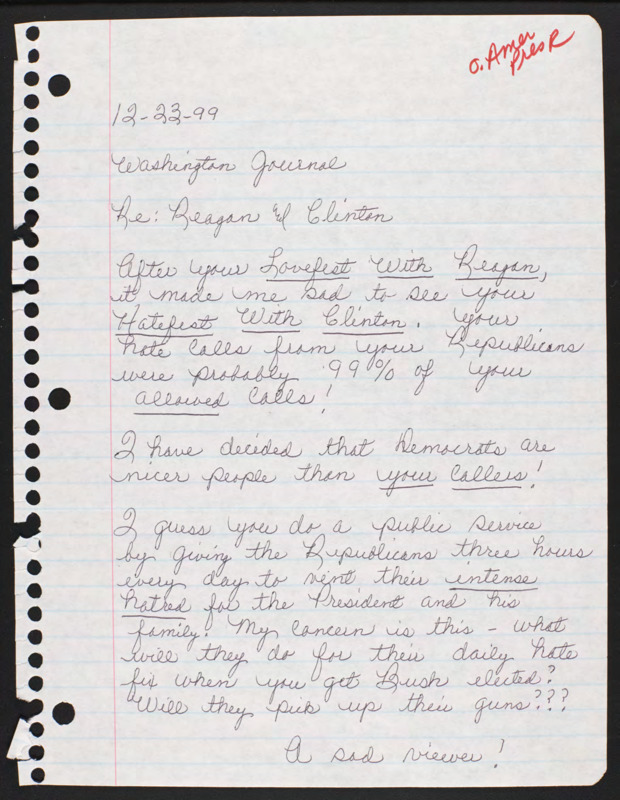 O. Amer
Pres R
12-23-99
Washington Journal
Re: Reagan & Clinton
After your Lovefest With Reagan,
it made me sad to see your
Hatefest With Clinton. Your
hate calls from your Republicans
were probably 99% of your
allowed calls!
I have decided that Democrats are
nicer people than your callers!
I guess you do a public service
by giving the Republicans three hours
every day to vent their intense
hatred for the President and his
family. My concern is this - what
will they do for their daily hate
fix when you get Bush elected?
Will they pick up their guns???
A sad viewer!